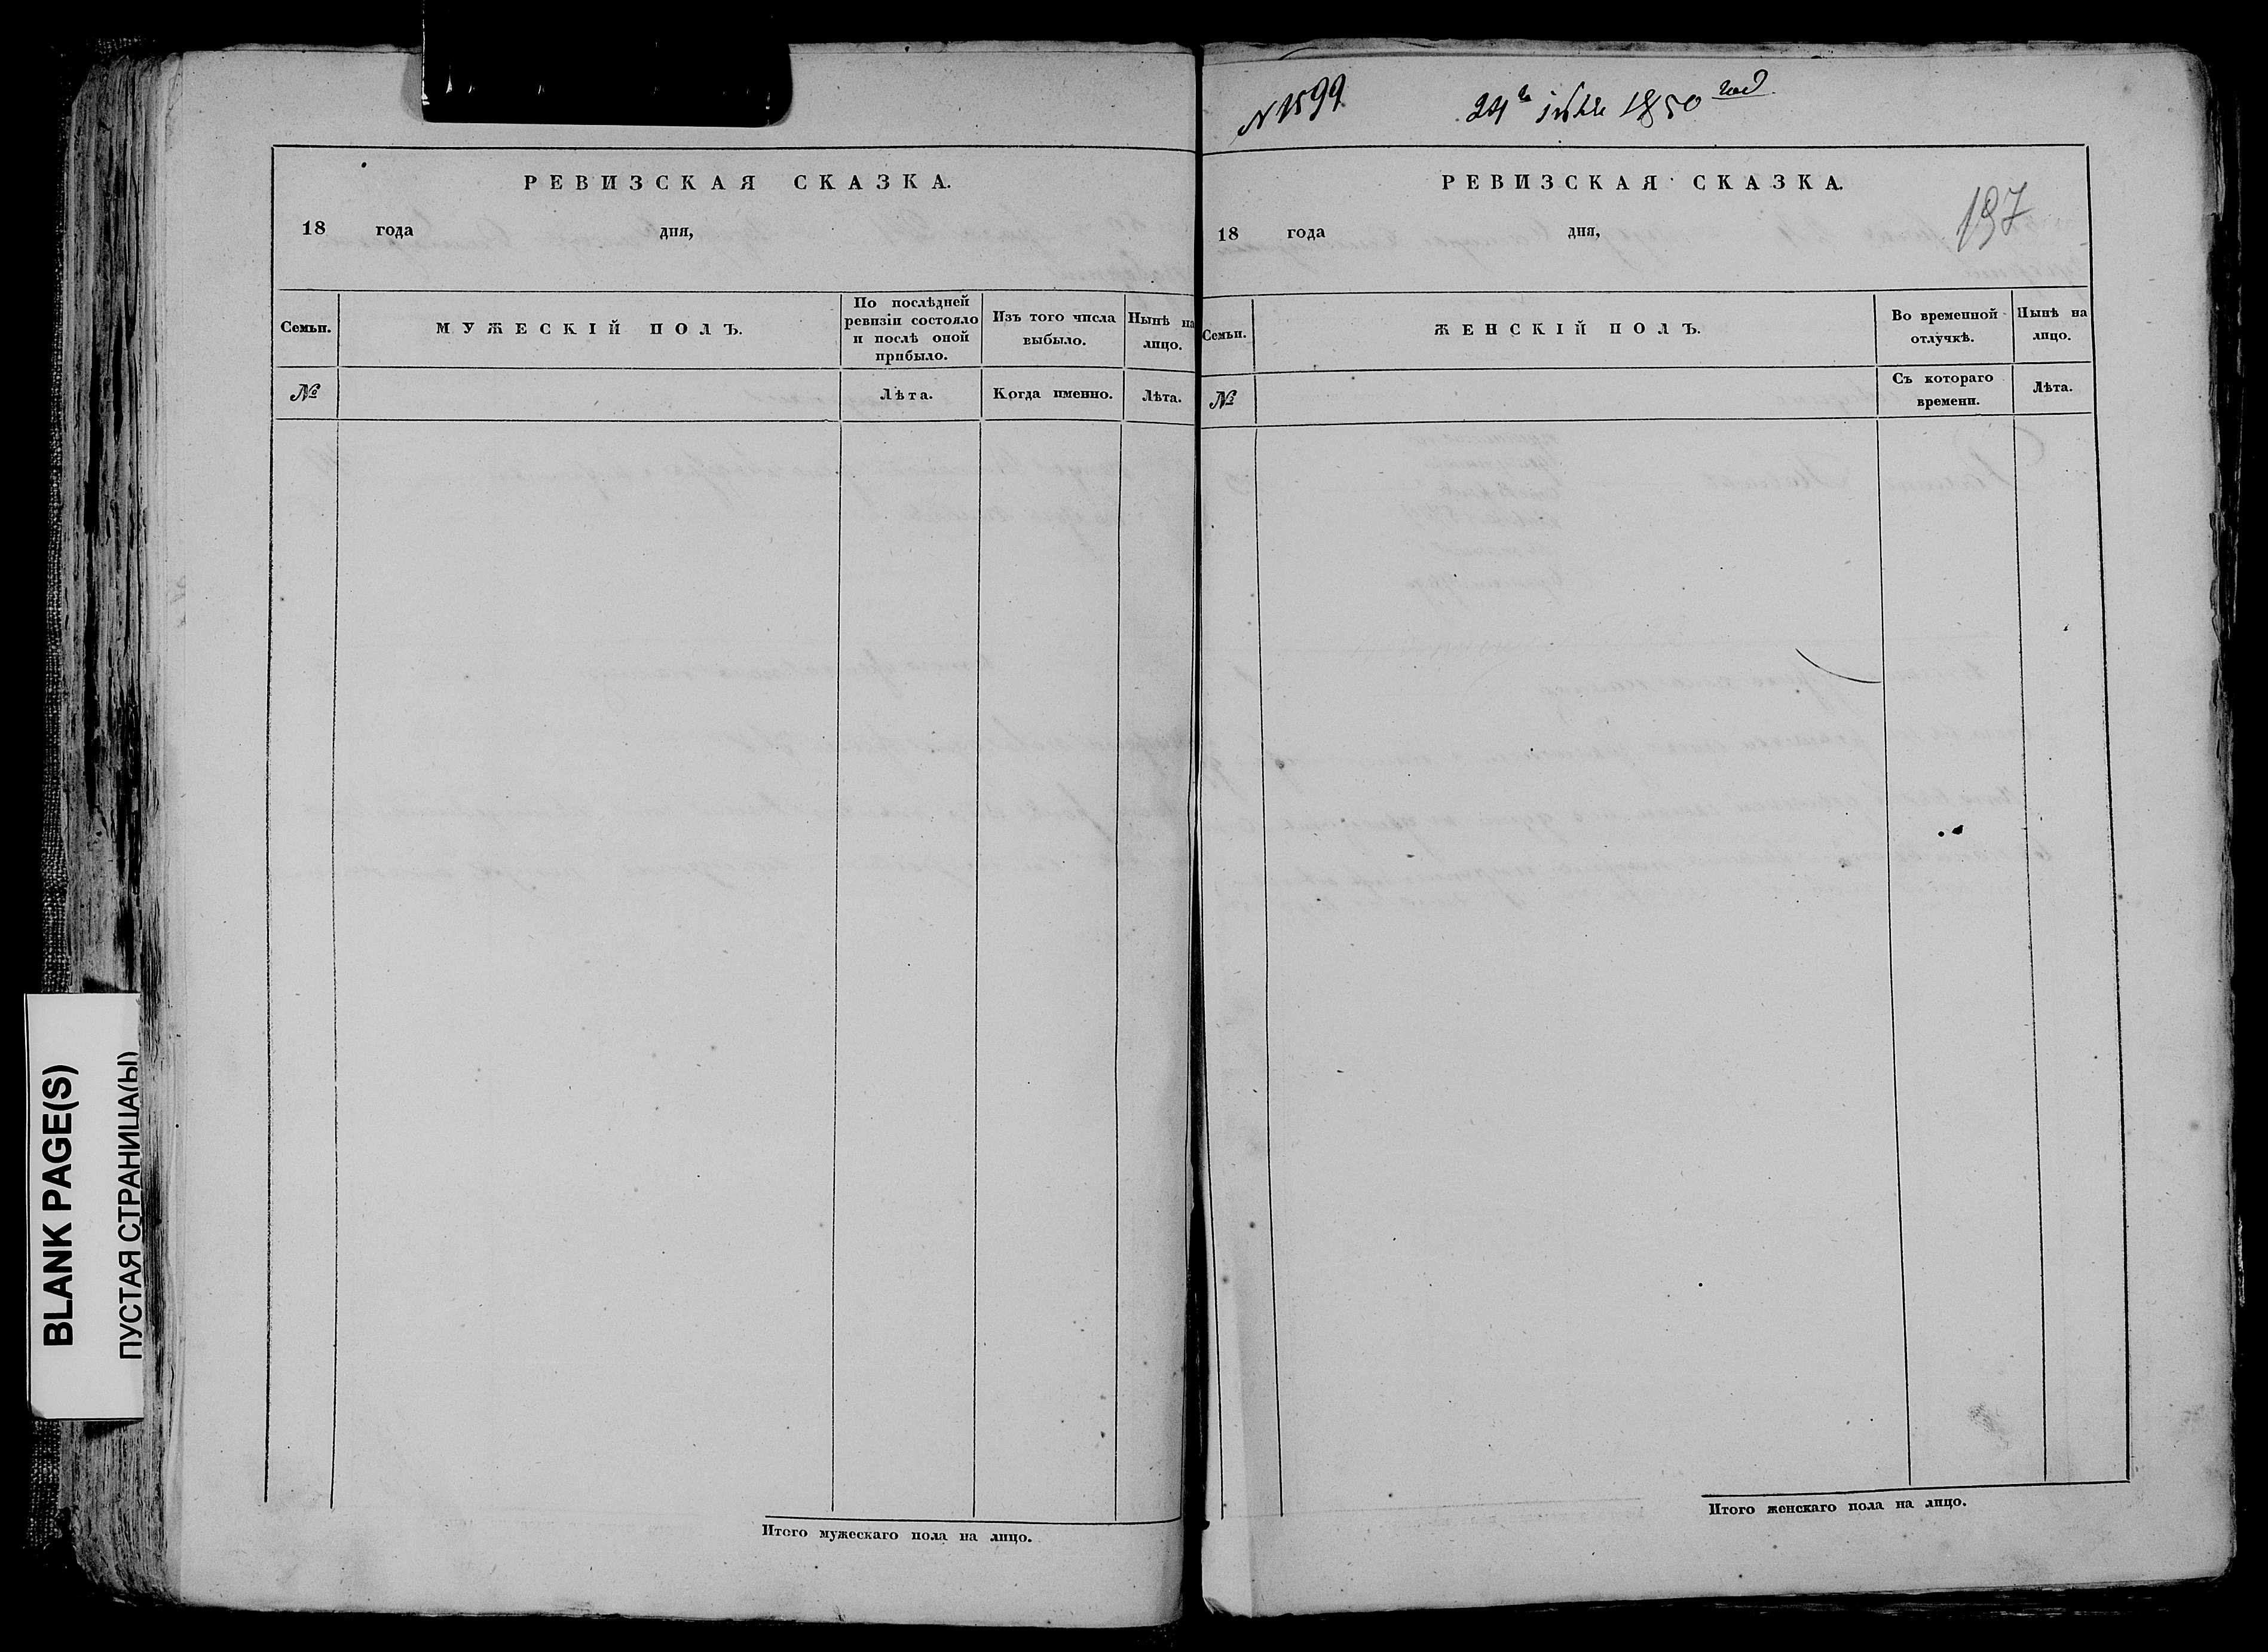 РЕВИЗСКАЯ СКАЗКА.
18 года дня,
Семьи.
МУЖЕСКІЙ ПОЛЪ.
По послѣдней
ревизіи состояло
и послѣ оной
прибыло.
Изъ того числа
выбыло.
Нынѣ на
лицо.
№
Лѣта.
Когда именно.
Лѣта.
Итого мужескаго пола на лицо.
N 1599
24 1850 год
РЕВИЗСКАЯ СКАЗКА.
197
18 года дня,
Семьи.
ЖЕНСКІЙ ПОЛЪ.
Во временной
отлучкѣ.
Нынѣ на
лицо.
№
Съ котораго
времени.
Лѣта.
Итого женскаго пола на лицо.
BLANK PAGE(S)
ПУСТАЯ СТРАНИЦА(Ы)